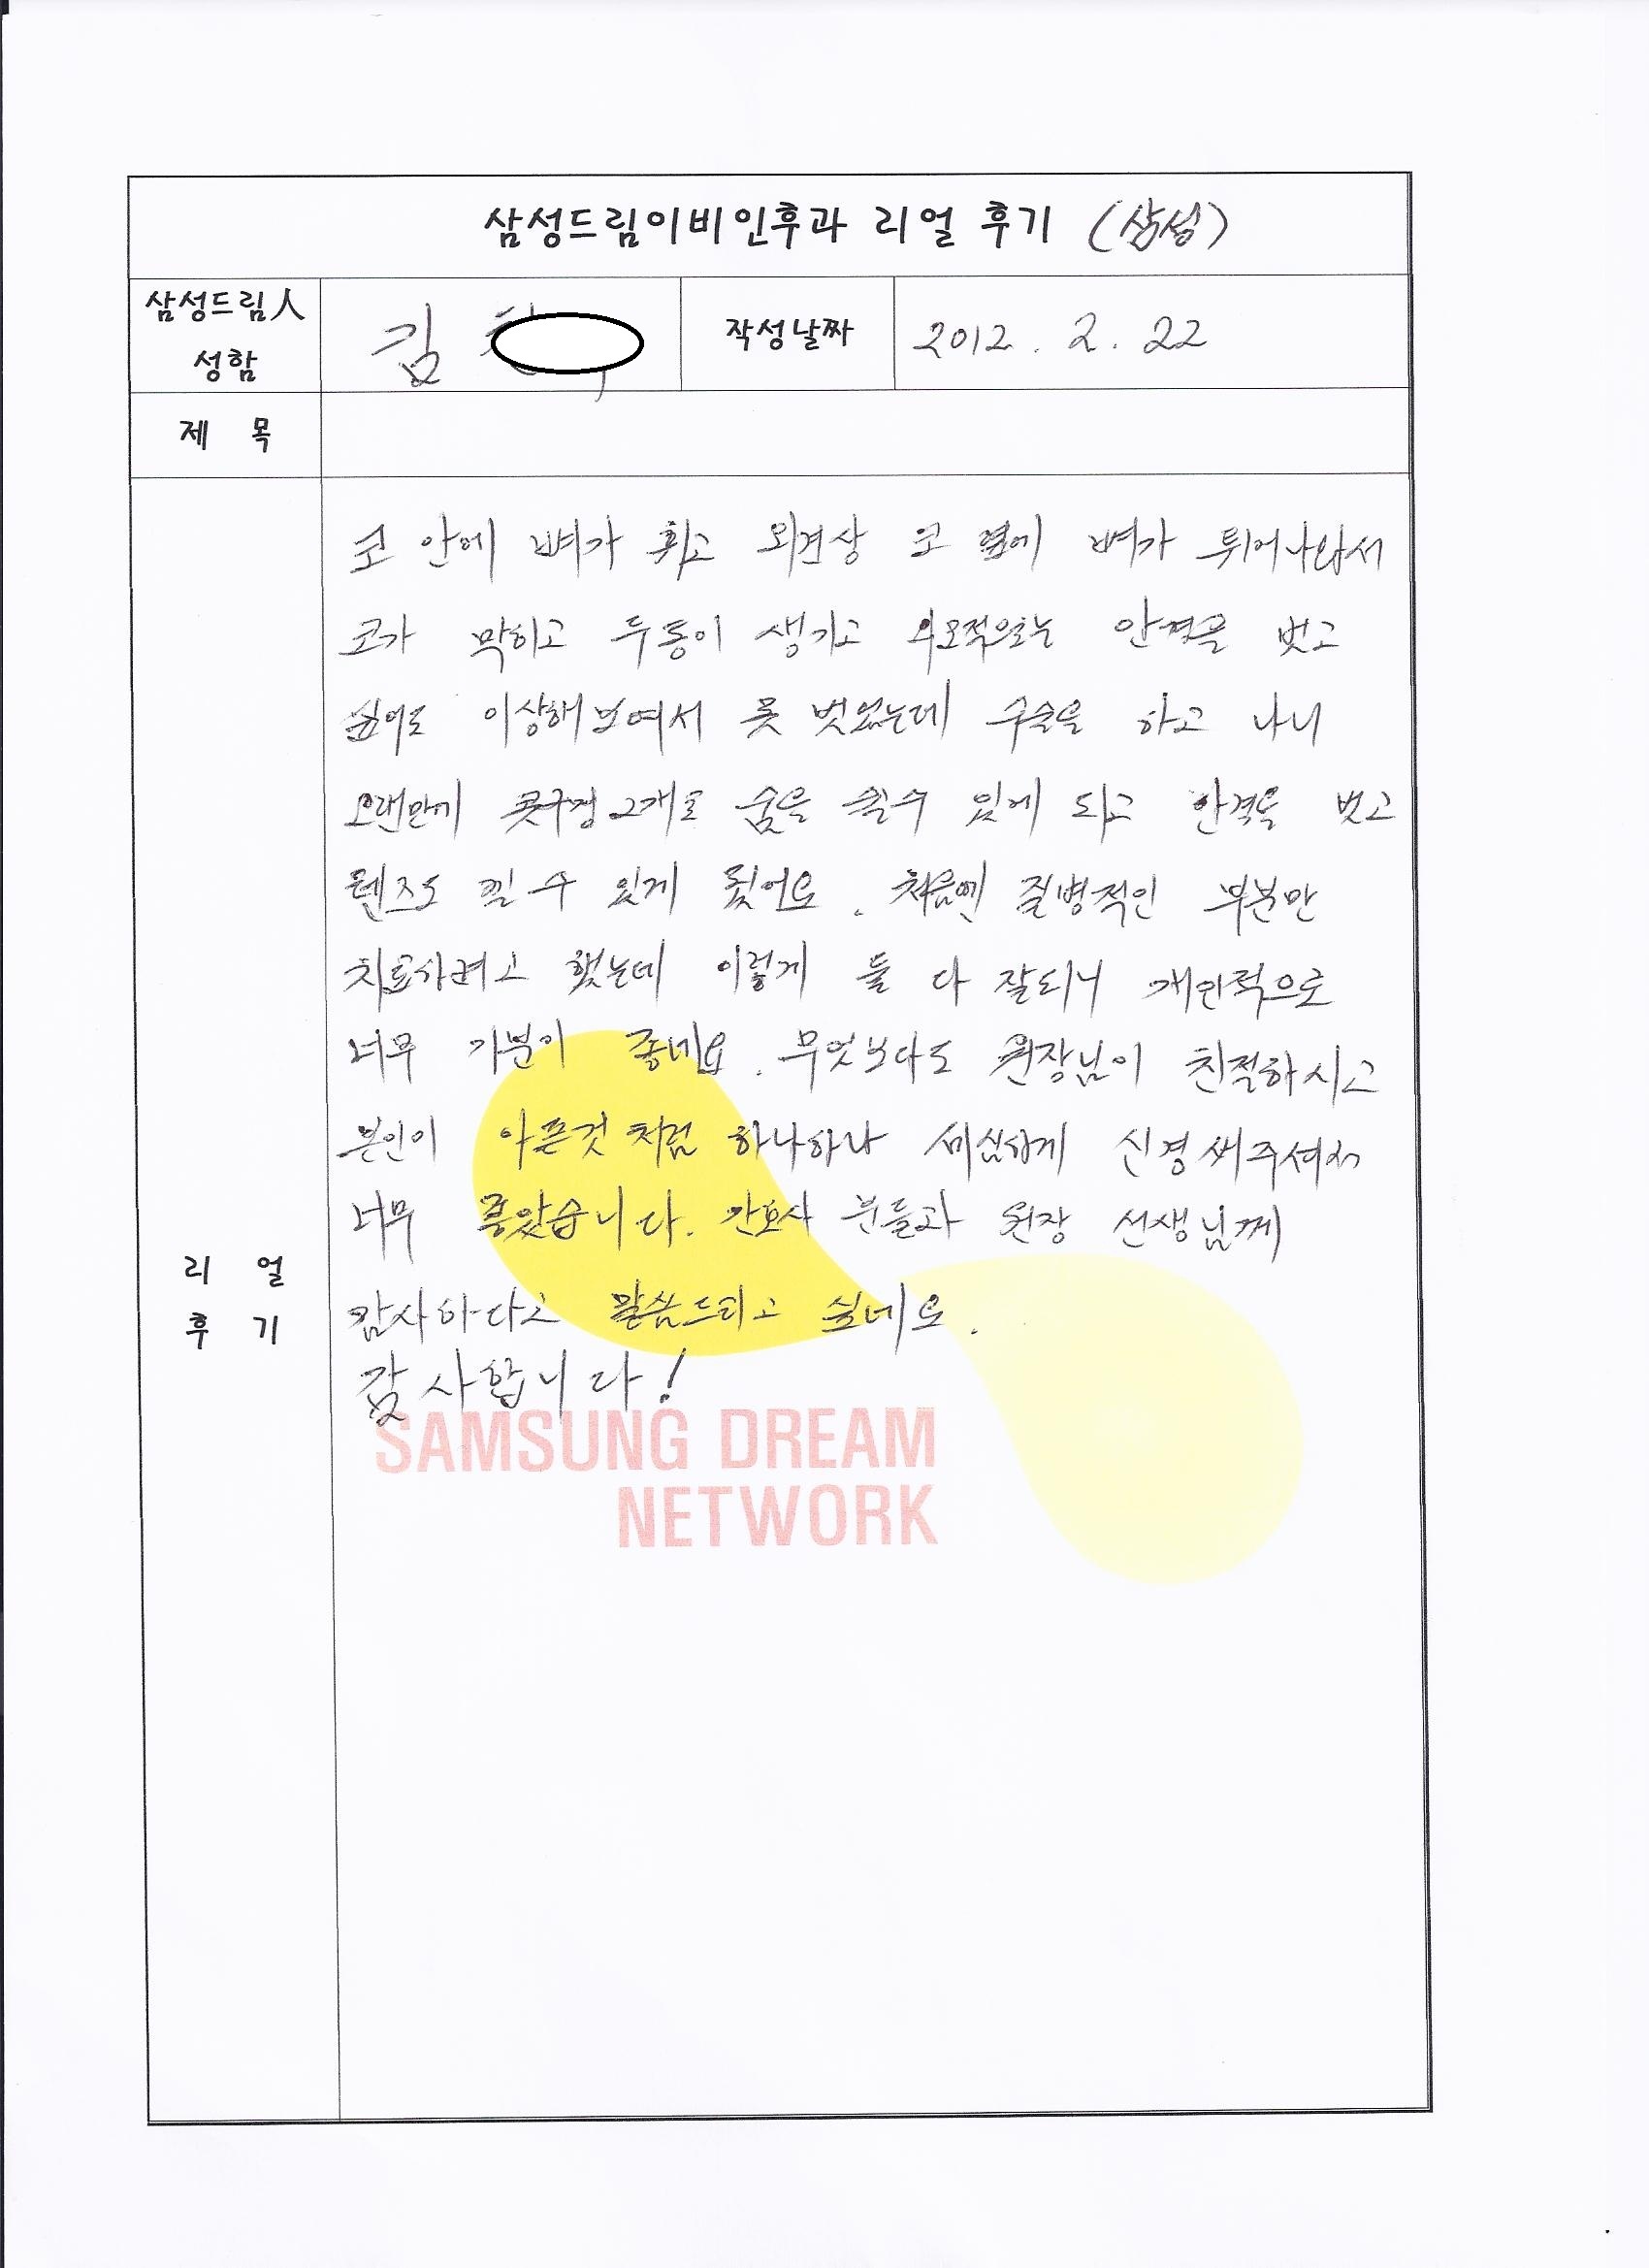 삼성드림이비인후과 리얼 후기 (삼성)
삼성드림人 성함 김 작성날짜 2012. 2. 22
제 목
코 안에 뼈가 휘고 외견상 코 옆에 뼈가 튀어나와서
코가 막히고 두통이 생기고 외모적으로는 안경을 벗고
싶어도 이상해보여서 못 벗었는데 수술을 하고 나니
오랜만에 콧구멍 2개로 숨을 쉴수 있게 되고 안경을 벗고
렌즈도 낄 수 있게 됬어요. 처음엔 질병적인 부분만
치료하려고 했는데 이렇게 둘 다 잘되니 개인적으로
너무 기분이 좋네요. 무엇보다도 원장님이 친절하시고
본인이 아픈것 처럼 하나하나 세심하게 신경써주셔서
너무 좋았습니다. 간호사 분들과 원장 선생님께
감사하다고 말씀드리고 싶네요.
감사합니다!
리 얼
후 기
SAMSUNG DREAM
NETWORK